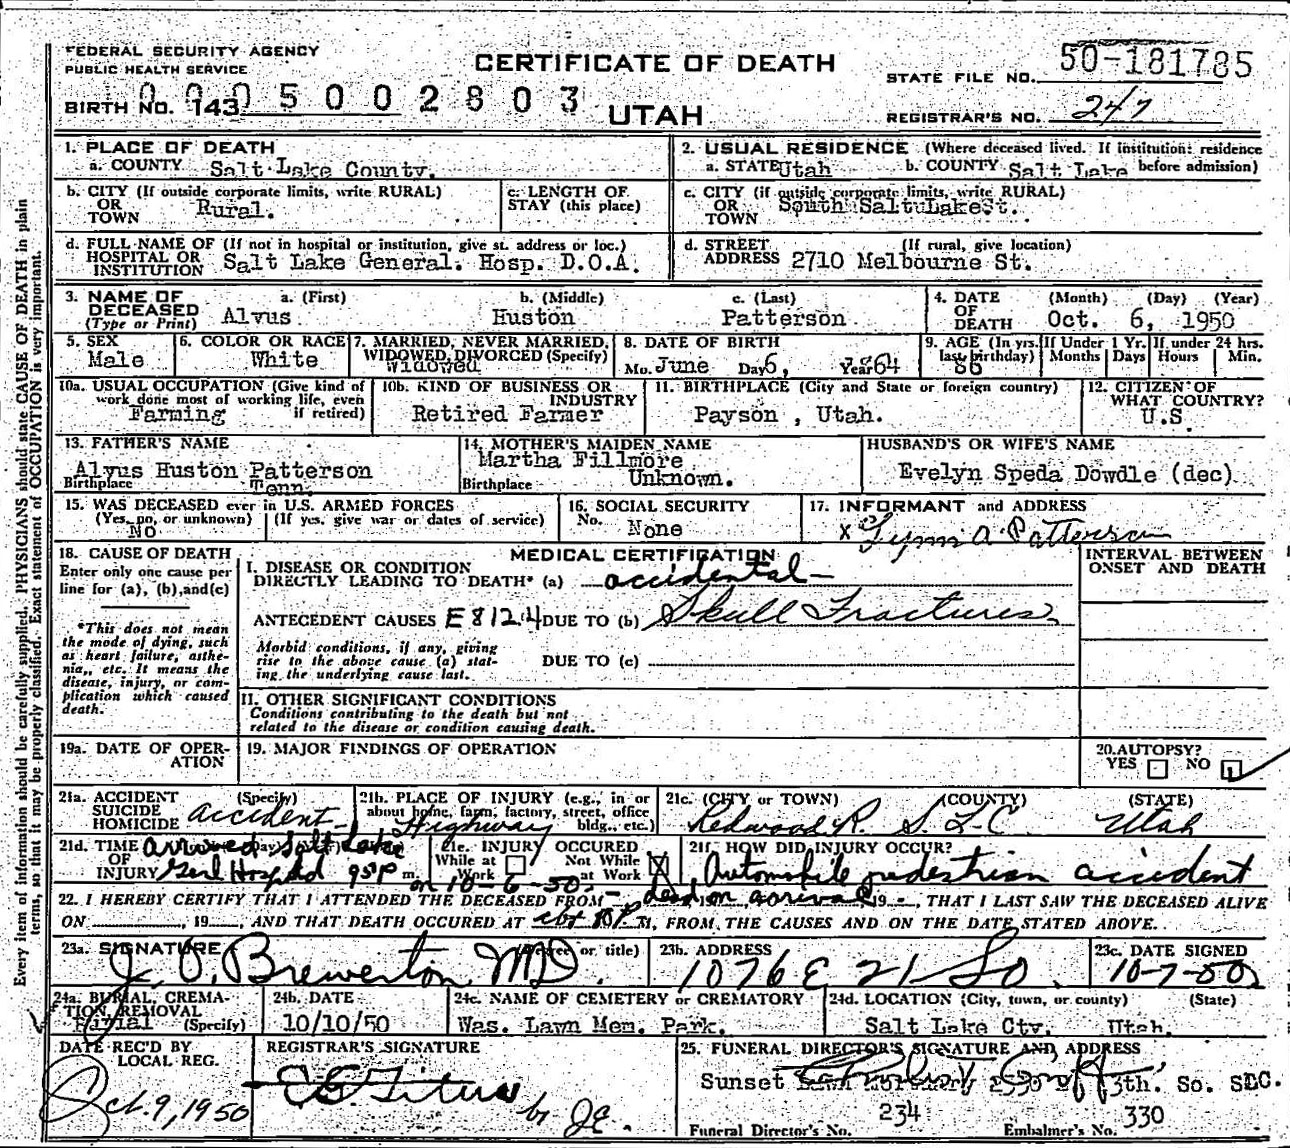 FEDERAL SECURITY AGENCY
PUBLIC HEALTH SERVICE
CERTIFICATE OF DEATH
STATE FILE NO. 50-181785
0005002803
BIRTH NO. 143
UTAH
REGISTRAR'S NO. 247
1. PLACE OF DEATH
a. COUNTY Salt Lake County.
2. USUAL RESIDENCE (Where deceased lived. If institution: residence before admission)
a. STATE Utah b. COUNTY Salt Lake
b. CITY (If outside corporate limits, write RURAL) OR TOWN Rural.
c. LENGTH OF STAY (this place)
c. CITY (if outside corporate limits, write RURAL) OR TOWN South Salt Lake St.
d. FULL NAME OF (If not in hospital or institution, give st. address or loc.)
HOSPITAL OR INSTITUTION Salt Lake General. Hosp. D.O.A.
d. STREET ADDRESS (If rural, give location) 2710 Melbourne St.
3. NAME OF DECEASED (Type or Print) a. (First) Alvus b. (Middle) Huston c. (Last) Patterson
4. DATE OF DEATH (Month) (Day) (Year) Oct. 6, 1950
5. SEX Male
6. COLOR OR RACE White
7. MARRIED, NEVER MARRIED, WIDOWED, DIVORCED (Specify) Widowed
8. DATE OF BIRTH Mo. June Day 6, Year 1864
9. AGE (In yrs. last birthday) 86 If Under 1 Yr. Months Days If under 24 hrs. Hours Min.
10a. USUAL OCCUPATION (Give kind of work done most of working life, even if retired) Farming
10b. KIND OF BUSINESS OR INDUSTRY Retired Farmer
11. BIRTHPLACE (City and State or foreign country) Payson , Utah.
12. CITIZEN OF WHAT COUNTRY? U.S.
13. FATHER'S NAME Alvus Huston Patterson
Birthplace Tenn.
14. MOTHER'S MAIDEN NAME Martha Fillmore
Birthplace Unknown.
HUSBAND'S OR WIFE'S NAME Evelyn Speda Dowdle (dec)
15. WAS DECEASED ever in U.S. ARMED FORCES
(Yes, no, or unknown) No (If yes, give war or dates of service)
16. SOCIAL SECURITY No. None
17. INFORMANT and ADDRESS
x Lynn A. Patterson
18. CAUSE OF DEATH
Enter only one cause per line for (a), (b), and (c)
*This does not mean the mode of dying, such as heart failure, asthenia, etc. It means the disease, injury, or complication which caused death.
MEDICAL CERTIFICATION
I. DISEASE OR CONDITION DIRECTLY LEADING TO DEATH* (a) accidental -
ANTECEDENT CAUSES E812.4 DUE TO (b) Skull Fractures
Morbid conditions, if any, giving rise to the above cause (a) stating the underlying cause last.
DUE TO (c)
II. OTHER SIGNIFICANT CONDITIONS
Conditions contributing to the death but not related to the disease or condition causing death.
INTERVAL BETWEEN ONSET AND DEATH
19a. DATE OF OPERATION
19. MAJOR FINDINGS OF OPERATION
20. AUTOPSY? YES NO
21a. ACCIDENT SUICIDE HOMICIDE (Specify) accident -
21b. PLACE OF INJURY (e.g., in or about home, farm, factory, street, office bldg., etc.) Highway
21c. (CITY or TOWN) (COUNTY) (STATE) Redwood R. S. L C. Utah
21d. TIME OF INJURY arrived Salt Lake Genl Hospital 955P m. on 10-6-50.
21e. INJURY OCCURED While at Work Not While at Work
21f. HOW DID INJURY OCCUR? Automobile pedestrian accident
22. I HEREBY CERTIFY THAT I ATTENDED THE DECEASED FROM - dead on arrival 19 -, THAT I LAST SAW THE DECEASED ALIVE
ON , 19 , AND THAT DEATH OCCURED AT abt 10 P. M, FROM THE CAUSES AND ON THE DATE STATED ABOVE.
23a. SIGNATURE (Degree or title) J. O. Brewerton MD.
23b. ADDRESS 1076 E 21 So.
23c. DATE SIGNED 10-7-50
24a. BURIAL, CREMATION, REMOVAL (Specify) Burial
24b. DATE 10/10/50
24c. NAME OF CEMETERY or CREMATORY Was. Lawn Mem. Park.
24d. LOCATION (City, town, or county) (State) Salt Lake Cty. Utah.
DATE REC'D BY LOCAL REG. Oct. 9, 1950
REGISTRAR'S SIGNATURE by J.E.
25. FUNERAL DIRECTOR'S SIGNATURE AND ADDRESS
Sunset Lawn Mortuary 2350 13th. So. SLC.
234 330
Funeral Director's No. Embalmer's No.
Every item of information should be carefully supplied. PHYSICIANS should state CAUSE OF DEATH in plain
terms, so that it may be properly classified. Exact statement of OCCUPATION is very important.